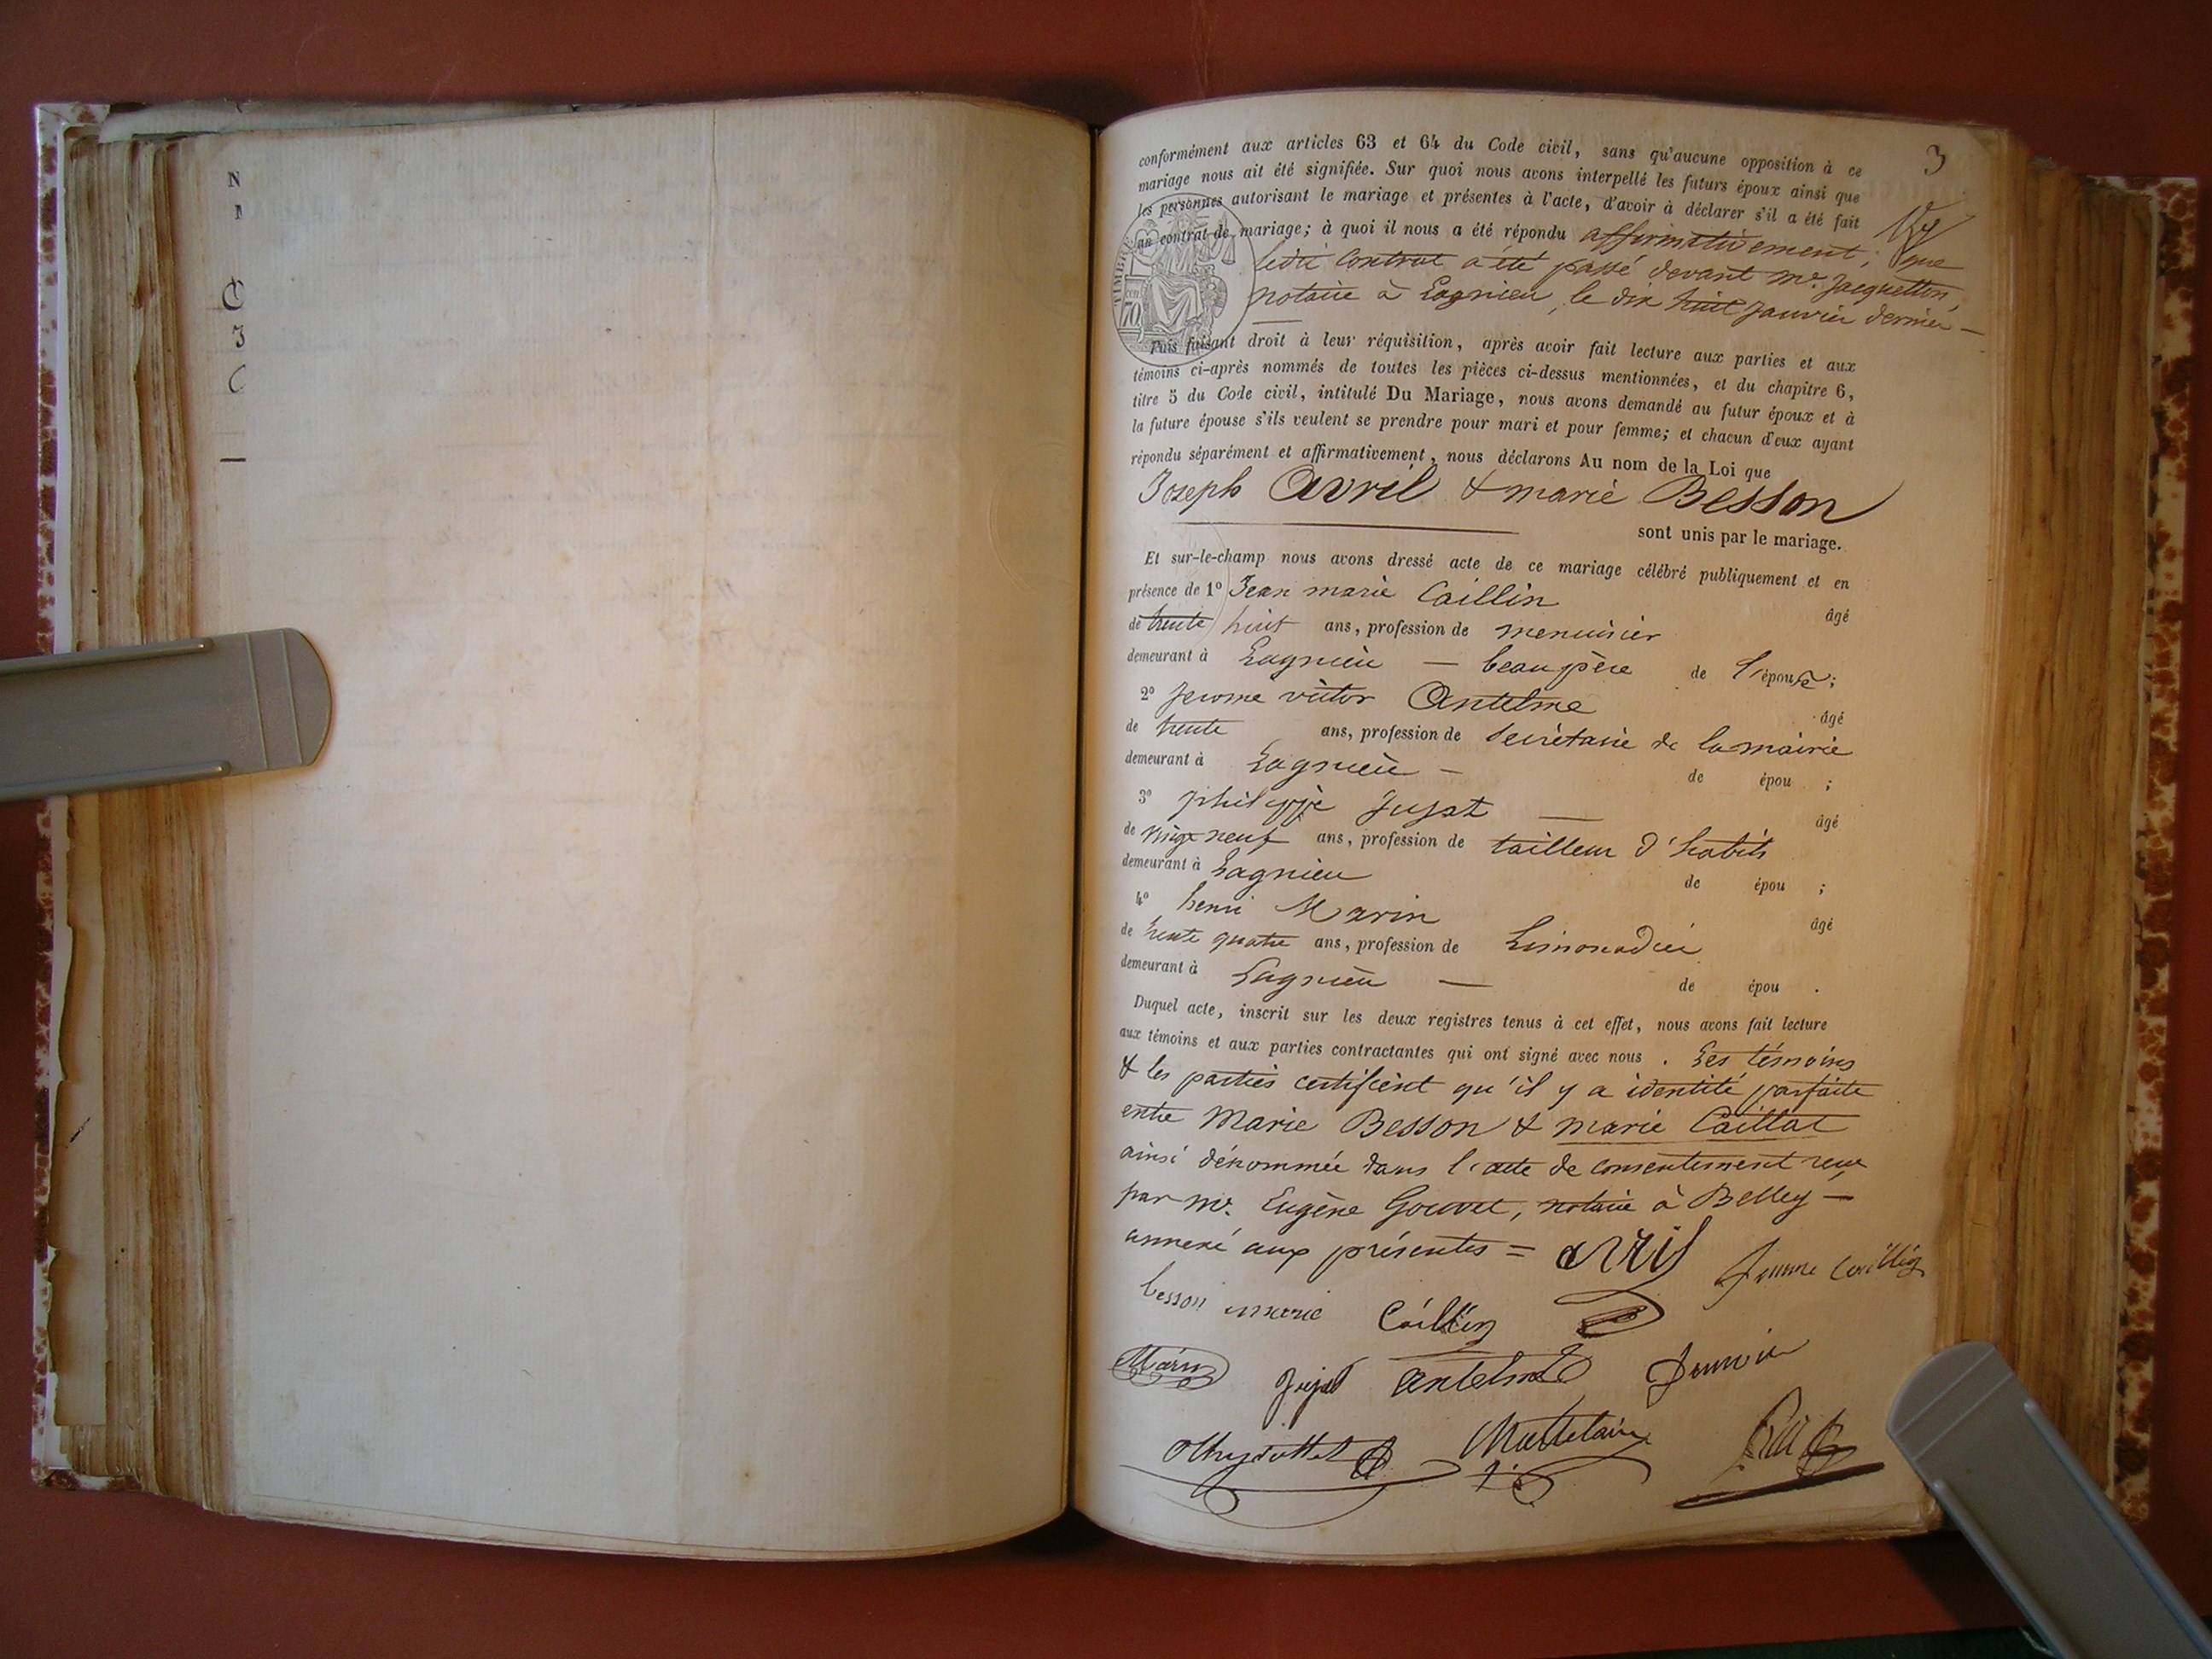 N
3
conformément aux articles 63 et 64 du Code civil, sans qu'aucune opposition à ce
mariage nous ait été signifiée. Sur quoi nous avons interpellé les futurs époux ainsi que
les personnes autorisant le mariage et présentes à l'acte, d'avoir à déclarer s'il a été fait
un contrat de mariage; à quoi il nous a été répondu affirmativement, que
ledit Contrat a été passé devant Mr. Jacquetton,
notaire à Lagnieu, le dix huit Janvier dernier —
TIMBRE
70
Puis faisant droit à leur réquisition, après avoir fait lecture aux parties et aux
témoins ci-après nommés de toutes les pièces ci-dessus mentionnées, et du chapitre 6,
titre 5 du Code civil, intitulé Du Mariage, nous avons demandé au futur époux et à
la future épouse s'ils veulent se prendre pour mari et pour femme; et chacun d'eux ayant
répondu séparément et affirmativement, nous déclarons Au nom de la Loi que
Joseph Avril & marie Besson
sont unis par le mariage.
Et sur-le-champ nous avons dressé acte de ce mariage célébré publiquement et en
présence de 1º Jean marie Caillin âgé
de trente huit ans, profession de menuisier
demeurant à Lagnieu — beau père de l'épouse;
2º Jerome victor Antelme âgé
de trente ans, profession de Secrétaire de la mairie
demeurant à Lagnieu — de épou ;
3º philippe Jujat — âgé
de vingt neuf ans, profession de tailleur d'habits
demeurant à Lagnieu de épou ;
4º henri Marin âgé
de trente quatre ans, profession de Limonadier
demeurant à Lagnieu — de épou .
Duquel acte, inscrit sur les deux registres tenus à cet effet, nous avons fait lecture
aux témoins et aux parties contractantes qui ont signé avec nous . Les témoins
& les parties certifient qu'il y a identité parfaite
entre Marie Besson & marie Caillat
ainsi dénommée dans l'acte de consentement reçu
par Mr. Eugène Gouvet, notaire à Belley —
annexé aux présentes = avril femme Caillin
besson marie Caillin
Marin Jujat antelme